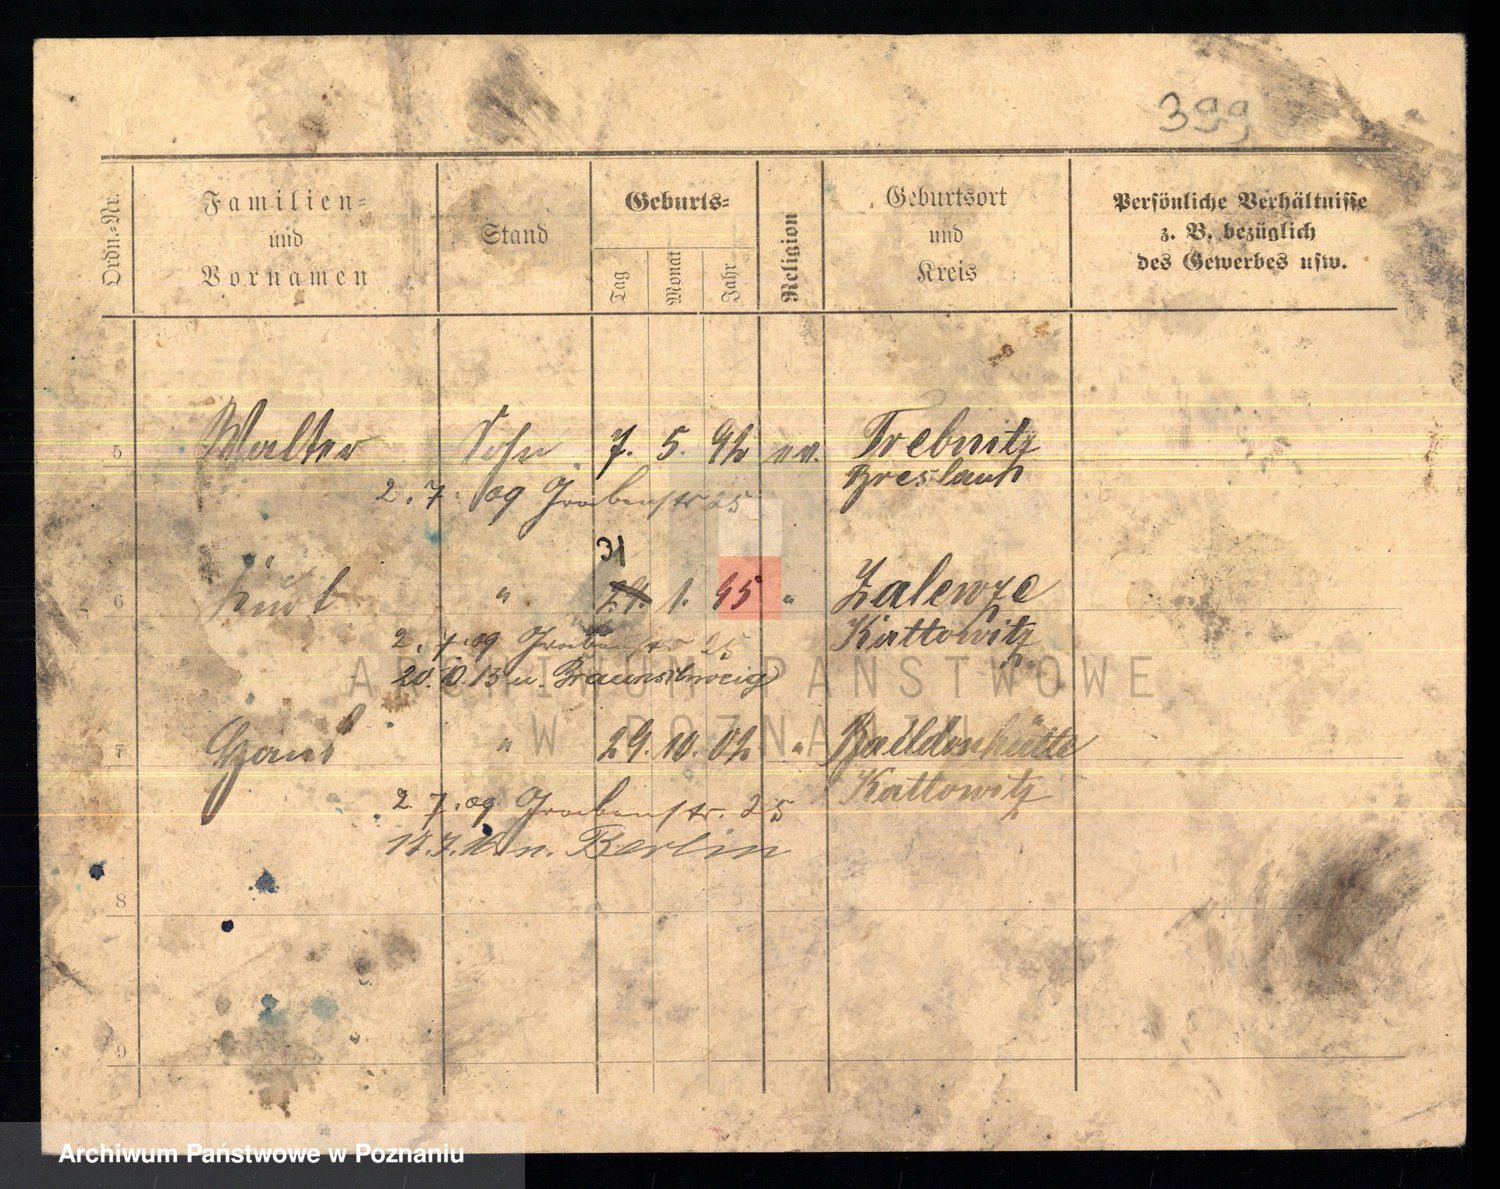 399
Ordn.-Nr.
Familien-
und
Vornamen
Stand
Geburts-
Tag
Monat
Jahr
Religion
Geburtsort
und
Kreis
Persönliche Verhältnisse
z. B. bezüglich
des Gewerbes usw.
5 Walter Sohn 7. 5. 92 ev. Trebnitz
Breslau
2. 7. 09 Grabenstr 25
31
6 Kurt " 29. 1. 95 " Zalenze
Kattowitz
2. 7. 09 Grabenstr 25
20.10.13 n. Braunschweig
7 Hans " 29. 10. 02 " Baildonhütte
Kattowitz
2. 7. 09 Grabenstr. 25
n. Berlin
8
9
ARCHIWUM PAŃSTWOWE
W POZNANIU
Archiwum Państwowe w Poznaniu